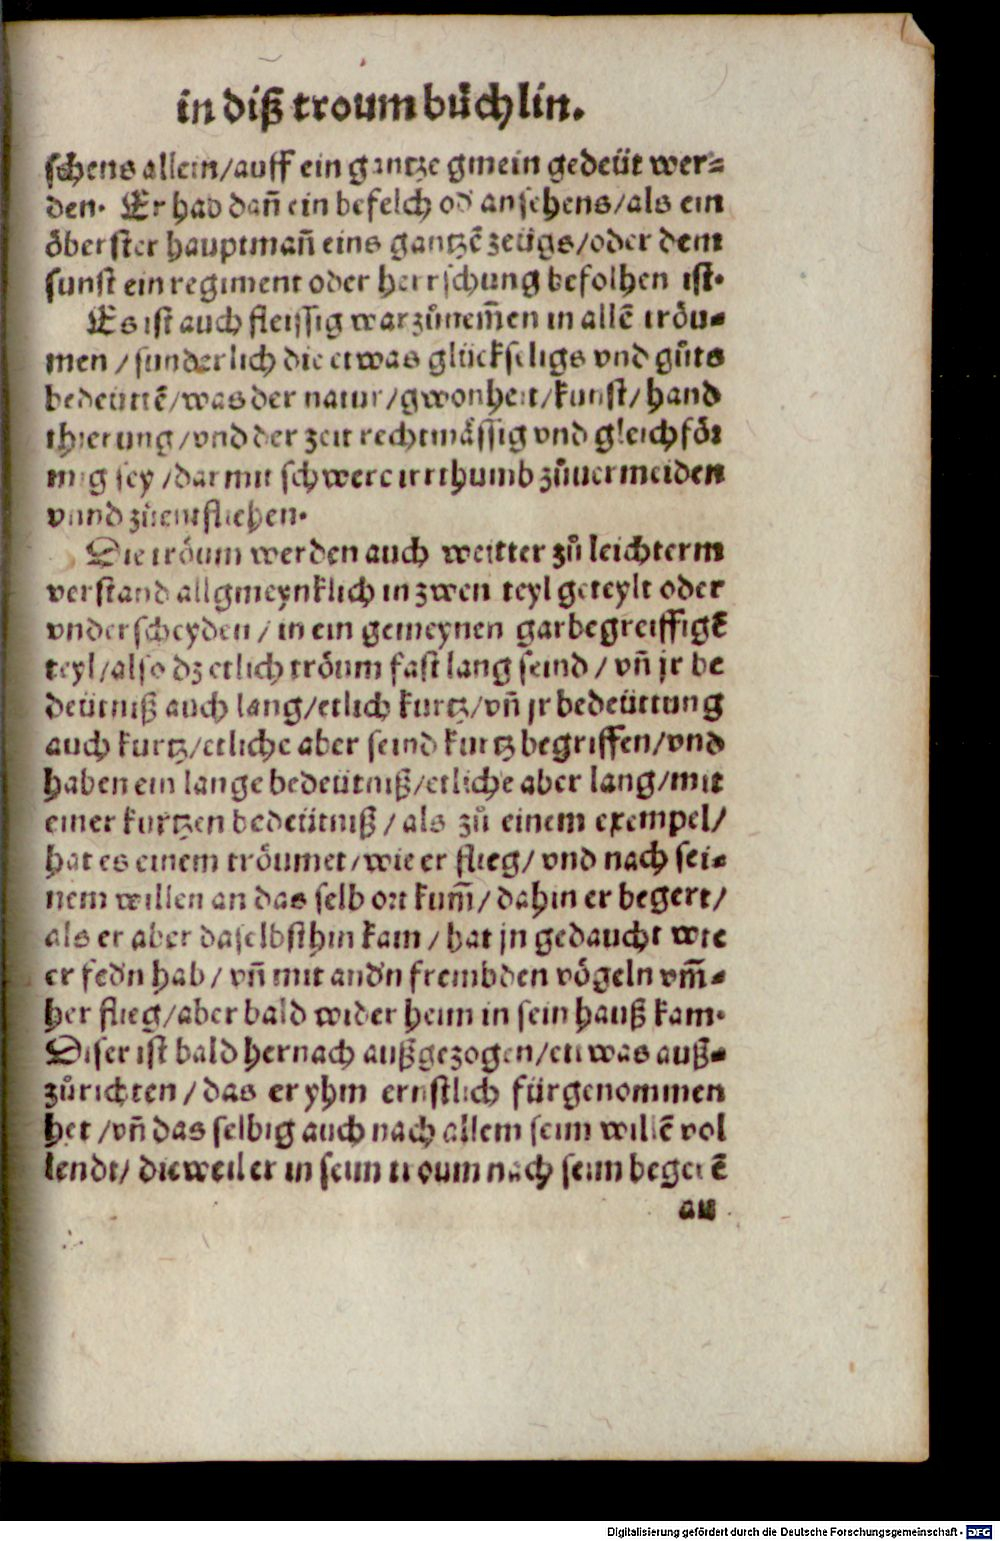 in diß troumbůchlin.
schens allein/auff ein gantze gmein gedeüt wer⸗
den. Er hab dañ ein befelch od ansehens/als ein
öberster hauptmañ eins gantzẽ zeügs/oder dem
sunst ein regiment oder herrschung befolhen ist.
Es ist auch fleissig war zůnem̃en in allẽ tröu⸗
men / sunderlich die etwas glückseligs vnd gůts
bedeüttẽ/was der natur/gwonheit/kunst/hand
thierung/vnd der zeit rechtmässig vnd gleichför
mig sey /darmit schwere irrthumb zůuermeiden
vnnd zůentfliehen.
Die tröum werden auch weitter zů leichterm
verstand allgmeynklich in zwen teyl geteylt oder
vnderscheyden / in ein gemeynen garbegreiffigẽ
teyl/also dz etlich tröum fast lang seind / vñ jr be
deütniß auch lang/etlich kurtz/vñ jr bedeüttung
auch kurtz/etliche aber seind kurtz begriffen/vnd
haben ein lange bedeütniß/etliche aber lang/mit
einer kurtzen bedeütniß / als zů einem exempel/
hat es einem tröumet/wie er flieg/ vnd nach sei⸗
nem willen an das selb ort kum̃/ dahin er begert/
als er aber daselbsthin kam / hat jn gedaucht wie
er fedn hab / vñ mit andn frembden vögeln vm̃⸗
her flieg/aber bald wider heim in sein hauß kam.
Diser ist bald hernach außgezogen/etwas auß⸗
zůrichten / das er yhm ernstlich fürgenommen
het /vñ das selbig auch nach allem seim willẽ vol
lendt/ dieweil er in seim troum nach seim begerẽ
an
Digitalisierung gefördert durch die Deutsche Forschungsgemeinschaft - DFG